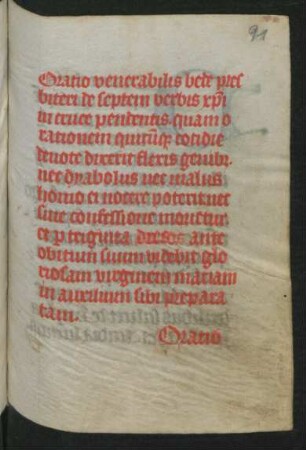 91
Oratio venerabilis bede pres
biteri de septem verbis xp̄i
in cruce pendentis quam o
rationem quicūq̄ cotidie
devote dixerit flexis genibꝰ
nec dyabolus nec malus
homo ei nocere poterit nec
sine confessione morietur
et p triginta dies ante
obitum suum videbit glo
riosam virginem mariam
in auxilium sibi prepara
tam.
Oratio